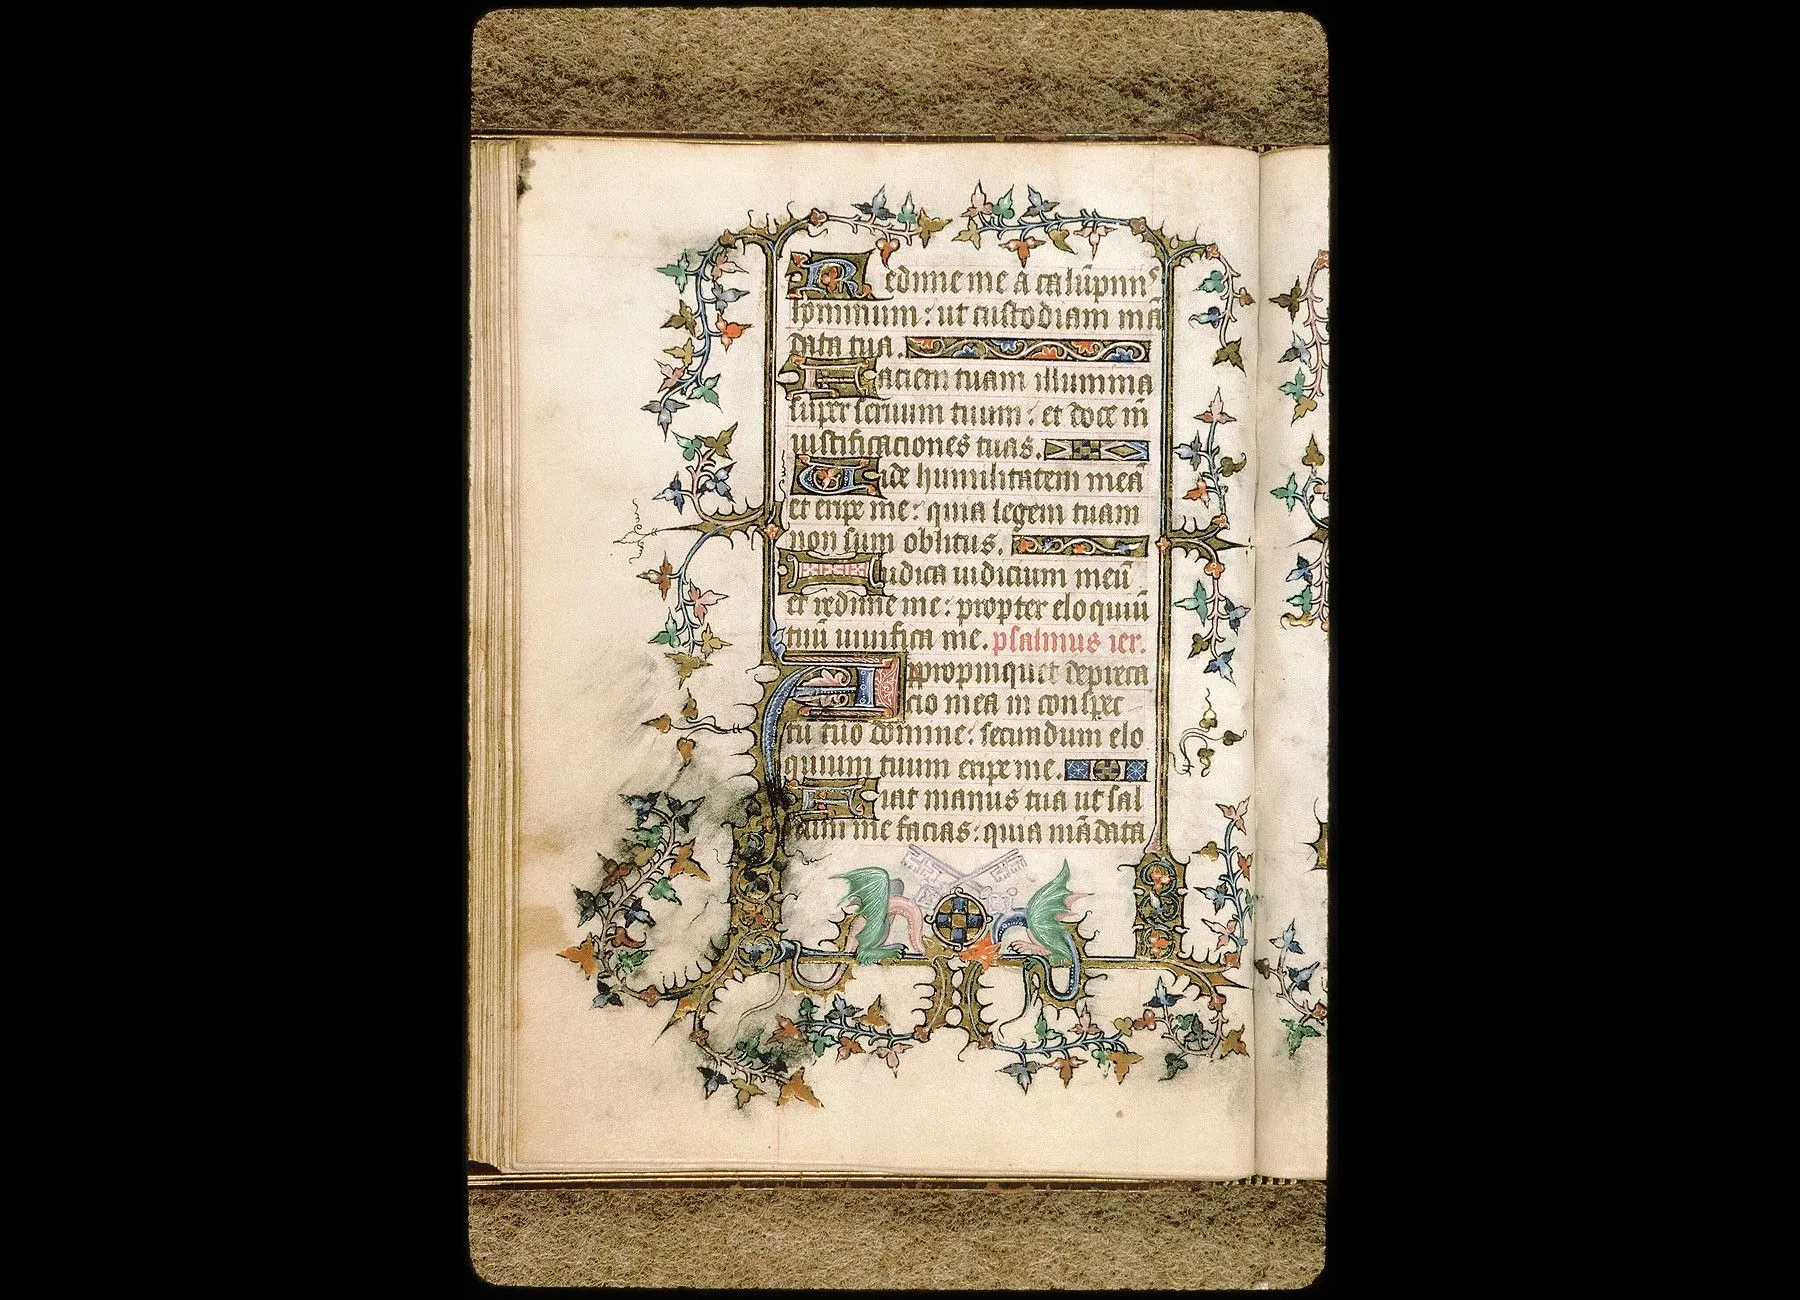 Redime me a calūpniis
hominum : ut custodiam mā
data tua.
Faciem tuam illumina
super seruum tuum : et doce m̄
iustificaciones tuas.
Uide humilitatem meā
et eripe me : quia legem tuam
non sum oblitus.
Iudica iudicium meū
et redime me : propter eloquiū
tuū uiuifica me. psalmus ier.
Appropinquet depreca
cio mea in conspec
tu tuo domine : secundum elo
quium tuum eripe me.
Fiat manus tua ut sal
uum me facias : quia mādata